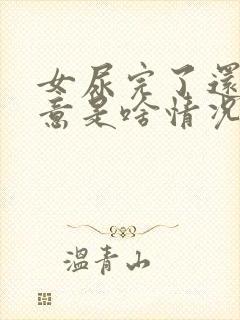 女尿完了還
意是啥情况
溫青山